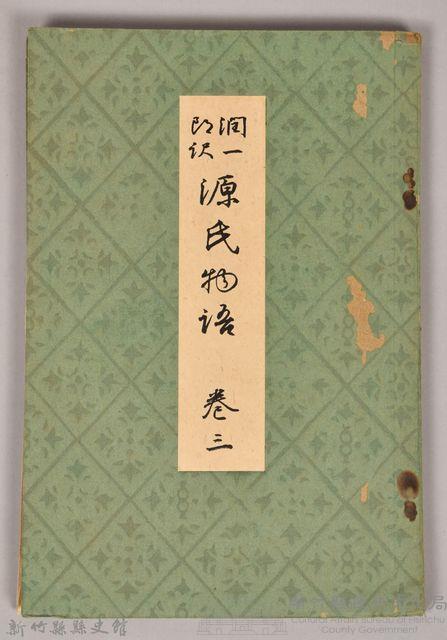 潤一
郎訳
源氏物語 巻三
新竹縣縣史館
Cultural Affairs Bureau of Hsinchu
County Government